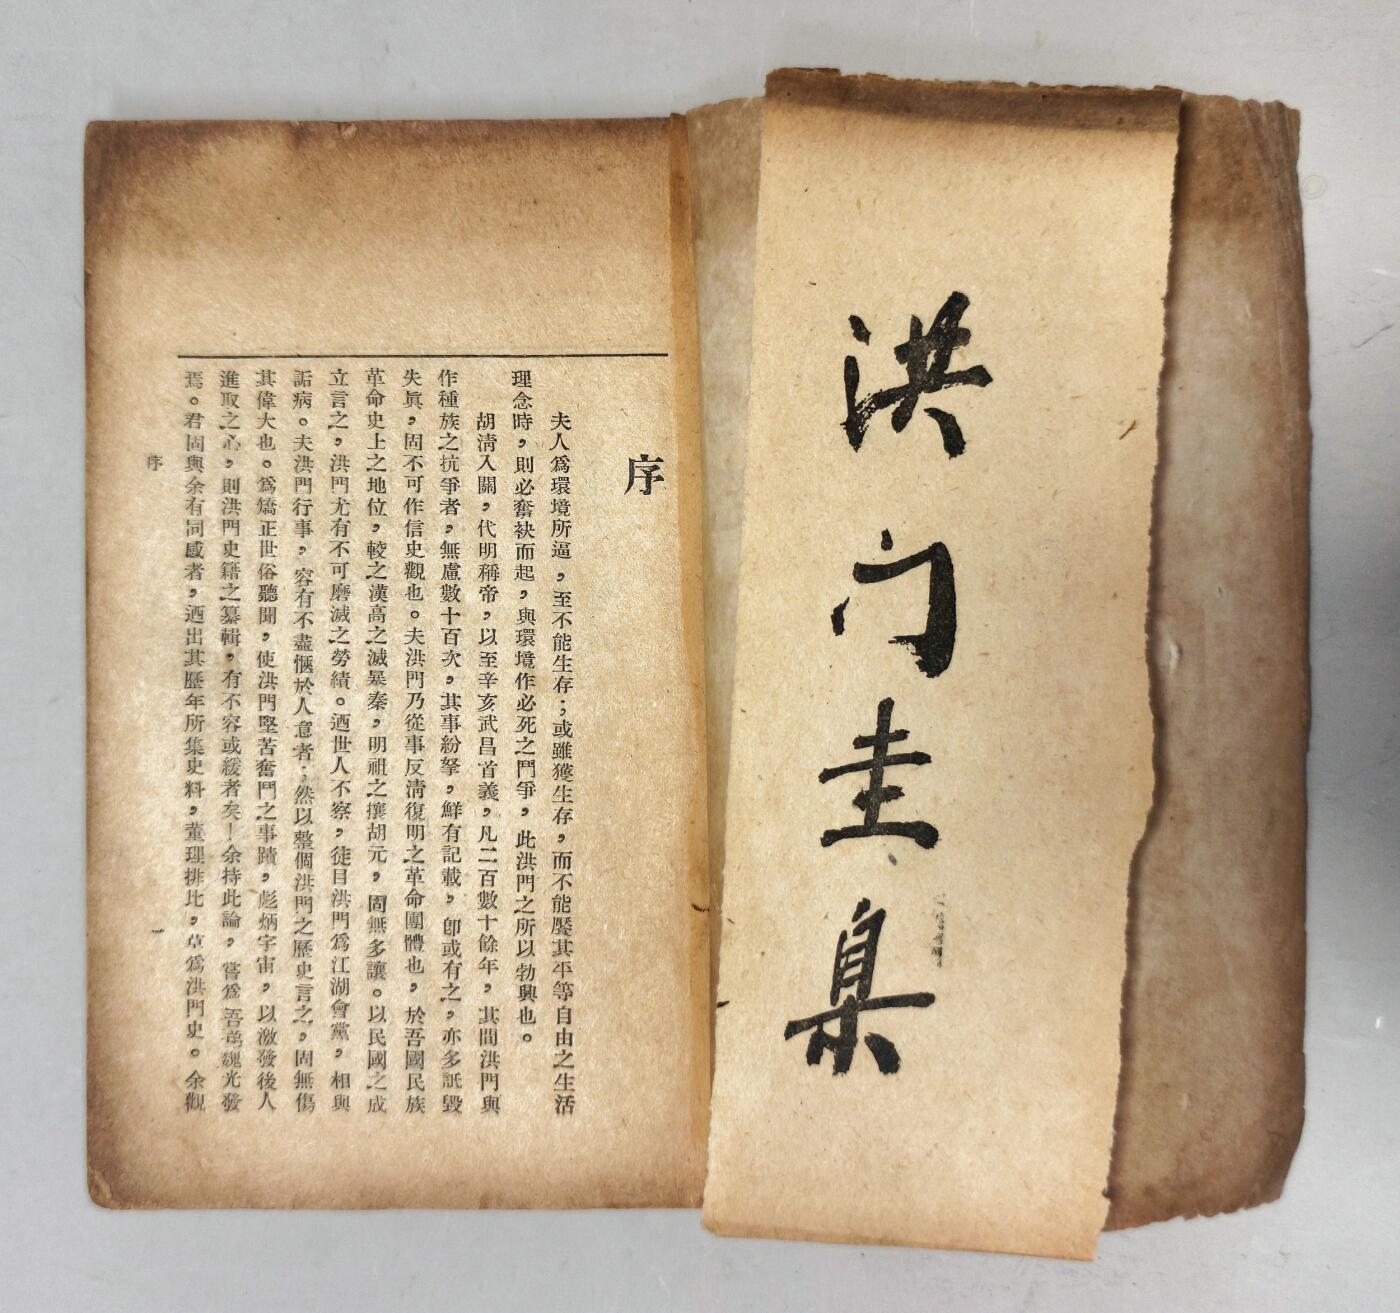 洪门圭臬
序
夫人爲環境所逼，至不能生存；或雖獲生存，而不能饜其平等自由之生活
理念時，則必奮袂而起，與環境作必死之鬥爭，此洪門之所以勃興也。
胡淸入關，代明稱帝，以至辛亥武昌首義，凡二百數十餘年，其間洪門與
作種族之抗爭者，無慮數十百次，其事紛拏，鮮有記載，卽或有之，亦多詆毀
失眞，固不可作信史觀也。夫洪門乃從事反淸復明之革命團體也，於吾國民族
革命史上之地位，較之漢高之滅暴秦，明祖之攘胡元，固無多讓。以民國之成
立言之，洪門尤有不可磨滅之勞績。迺世人不察，徒目洪門爲江湖會黨，相與
詬病。夫洪門行事，容有不盡愜於人意者；然以整個洪門之歷史言之，固無傷
其偉大也。爲矯正世俗聽聞，使洪門堅苦奮鬥之事蹟，彪炳宇宙，以激發後人
進取之心，則洪門史籍之纂輯，有不容或緩者矣！余持此論，嘗爲吾弟魏光發
焉。君固與余有同感者，迺出其歷年所集史料，董理排比，草爲洪門史。余觀
序
一